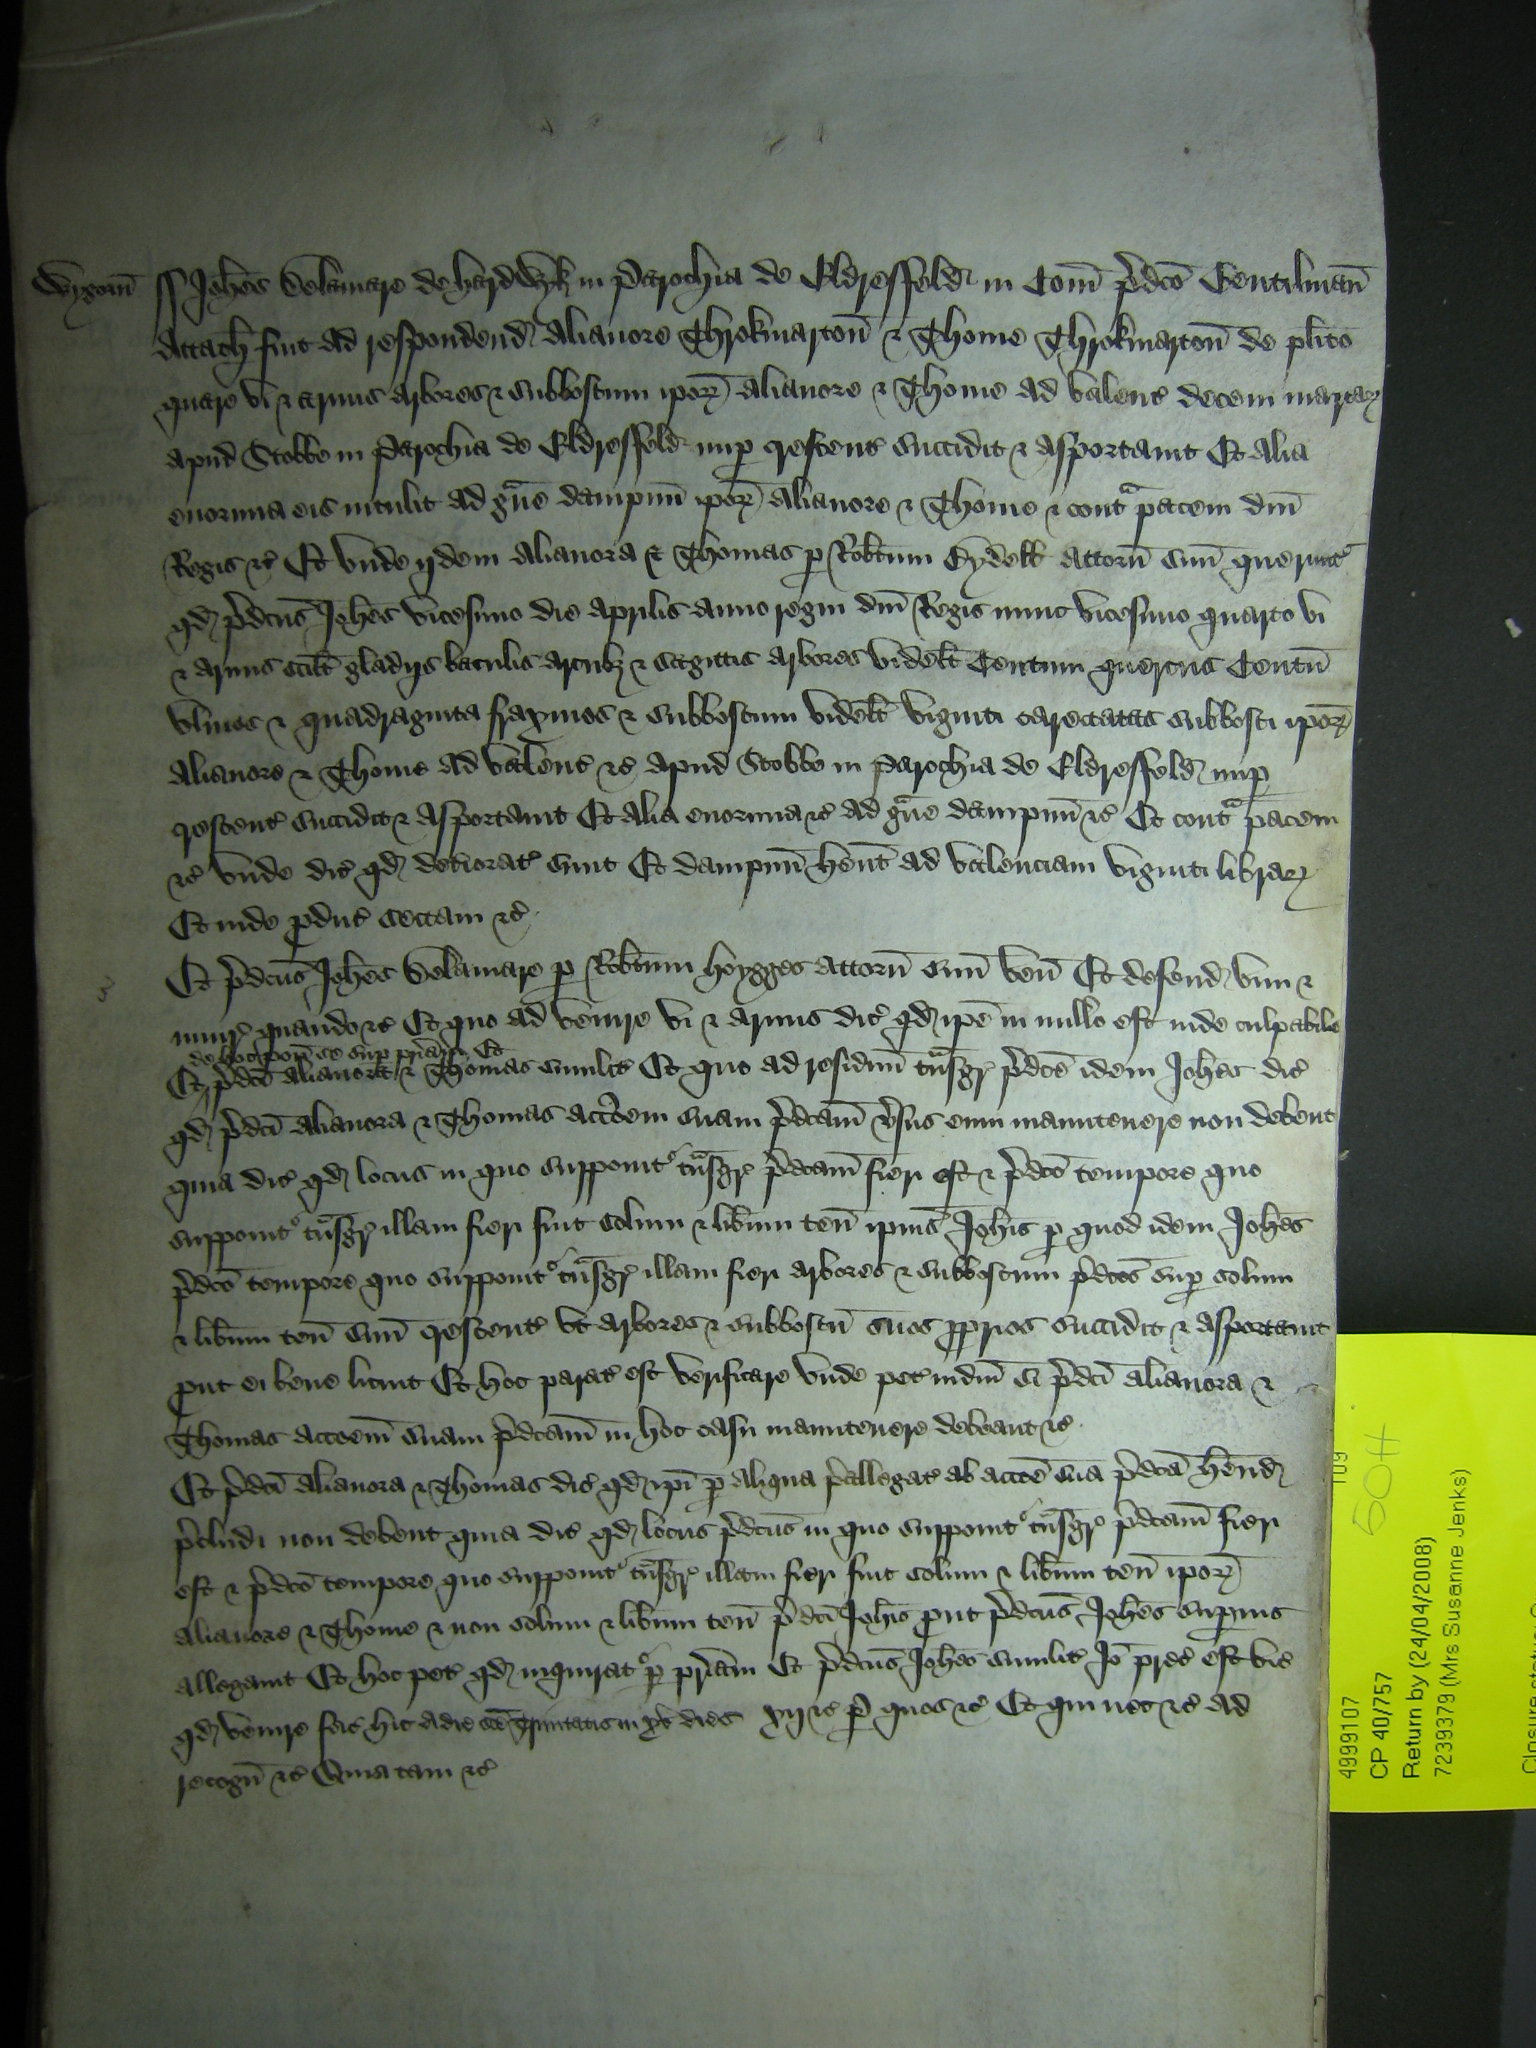 Wygorn̄ ss Joh̄es Delamare de hardwyk in Parochia de Eldresfeld in Com̄ p̄dc̄o Gentilman̄
Attach fuit ad respondend Alianore Throkmarton̄ & Thome Throkmarton̄ de pl̄ito
quare vi & armis arbores & subboscum ip̄or Alianore & Thome ad valenc decem marcar
apud Stobbe in Parochia de Eldresfeld nup crescent succidit & asportauit Et alia
enormia eis intulit ad gᵃue dampnū ip̄or Alianore & Thome & contᵃ pacem dn̄i
Regis &c Et vnde ijdem Alianora & Thomas p Rob̄tum attorn̄ suū querunt
qd p̄dc̄us Joh̄es vicesimo die Aprilis anno regni dn̄i Regis nunc vicesimo quarto vi
& armis scilt gladijs baculis arcub & sagittis arbores videlt Centum quercus Centū
vlmos & quadraginta fraxinos & subboscum videlt viginti carectatas subbosci ip̄or
Alianore & Thome ad valenc &c apud Stobbe in Parochia de Eldresfeld nup
crescent succidit & asportauit Et alia enormia &c ad gᵃue dampnū &c Et contᵃ pacem
&c vnde dic qd deteriorat sunt Et dampnū hent ad valenciam viginti librar
Et inde pduc sectam &c
Et p̄dc̄us Joh̄es Delamare p Rob̄tum attorn̄ suū ven̄ Et defend vim &
iniur quando &c Et quo ad venire vi & armis dic qd ip̄e in nullo est inde culpabilis
de hoc pon̄ se sup pr̄iam Et
Et p̄dc̄i Alianora & Thomas similit Et quo ad residuū tᵃnsgr p̄dc̄e idem Joh̄es dic
qd p̄dc̄i Alianora & Thomas acc̄oem suam p̄dc̄am v̄sus eum manutenere non debent
quia dic qd locus in quo supponit tᵃnsgr p̄dc̄am fieri est & p̄dc̄o tempore quo
supponit tᵃnsgr illam fieri fuit solum & lib̄um ten̄ ip̄ius Joh̄is p quod idem Joh̄es
p̄dc̄o tempore quo supponit tᵃnsgr illam fieri arbores & subboscum p̄dc̄os sup solum
& lib̄um ten̄ suū crescent vt arbores & subboscū suos pprios succidit & asportauit
put ei bene licuit Et hoc parat est verificare vnde pet iudiū si p̄dc̄i Alianora &
Thomas acc̄oem suam p̄dc̄am in hoc casu manutenere debeant &c
Et p̄dc̄i Alianora & Thomas dic qd ip̄i p aliqua p̄allegat ab acc̄oe sua p̄dc̄a hend
p̄cludi non debent quia dic qd locus p̄dc̄us in quo supponit tᵃnsgr p̄dc̄am fieri
est & p̄dc̄o tempore quo supponit tᵃnsgr illam fieri fuit solum & lib̄um ten̄ ip̄or
Alianore & Thome & non solum & lib̄um ten̄ p̄dc̄i Joh̄is put p̄dc̄us Joh̄es supius
allegauit Et hoc pet qd inquirat p pr̄iam Et p̄dc̄us Joh̄es similit Io prec est vic
qd venire fac hic a die sc̄e Trinitatis in xv dies xij &c p quos &c Et qui nec &c ad
recogn̄ &c Quia tam &c
4999107
CP 40/757
Return by (24/04/2008)
7239379 (Mrs Susanne Jenks)
109